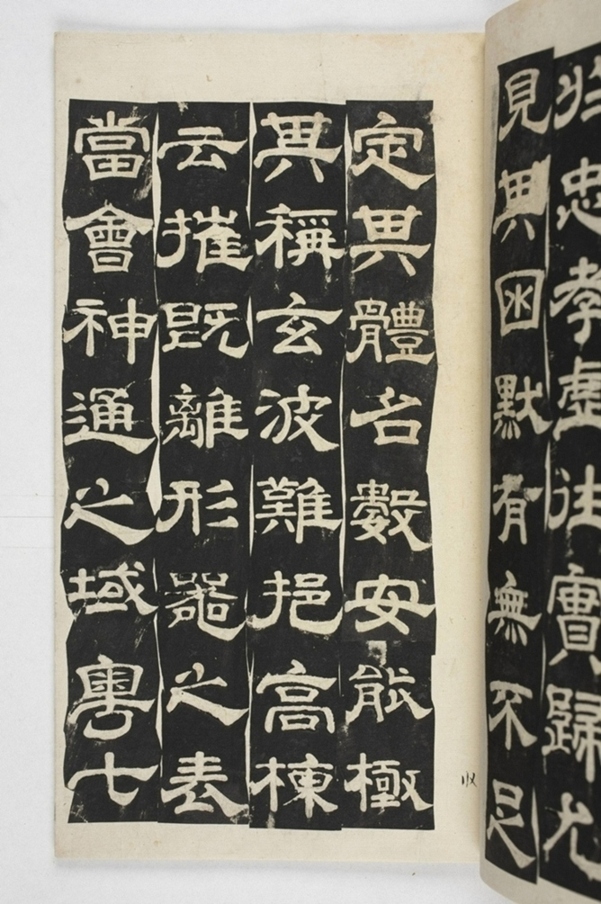 忠孝虛往實歸尤
見其囦默有無不足
定其體名數安能極
其稱玄波難挹高棟
云摧既離形器之表
當會神通之域粵七